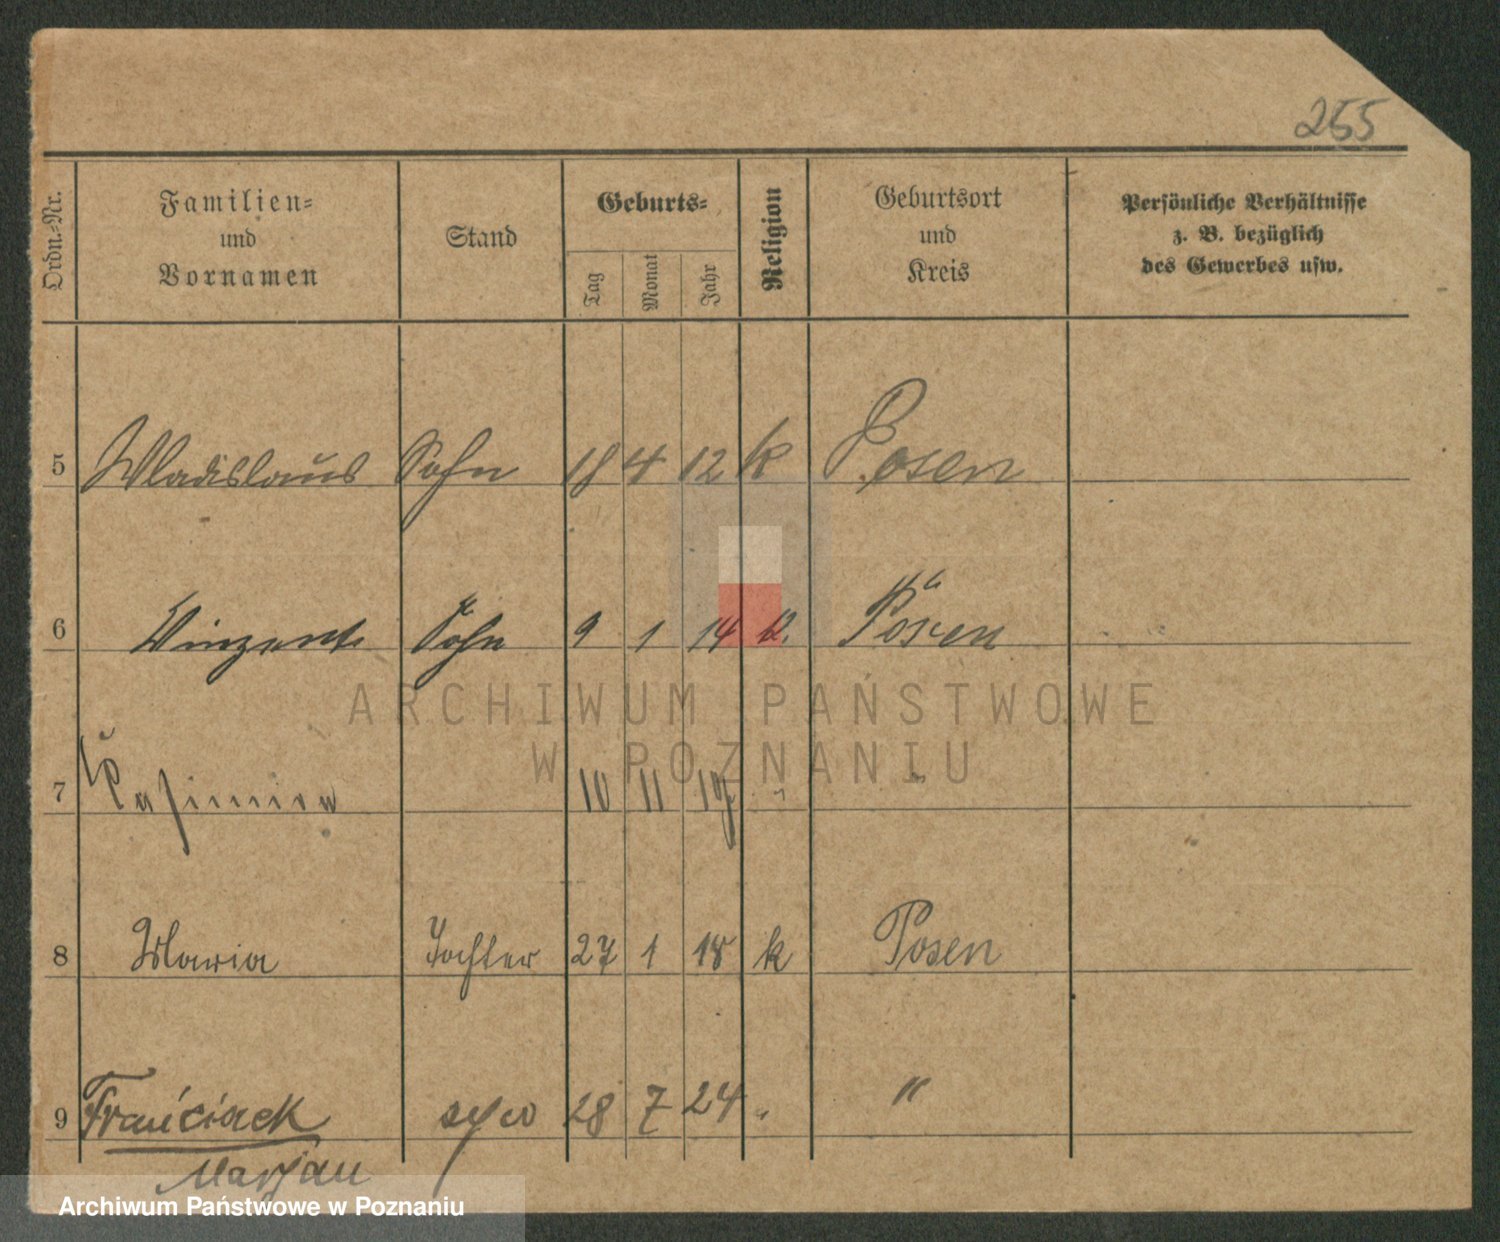 255
Ordn.-Nr.
Familien- und Vornamen
Stand
Geburts-
Tag
Monat
Jahr
Religion
Geburtsort und Kreis
Persönliche Verhältnisse
z. B. bezüglich
des Gewerbes usw.
5 Wladislaus Sohn 18 4 12 k Posen
6 Vinzent Sohn 9 1 14 k. Posen
ARCHIWUM PAŃSTWOWE
W POZNANIU
7 Casimira 10 11 19 " "
8 Maria Tochter 27 1 18 k Posen
9 Franciszek syn 28 7 24 " "
Marjan
Archiwum Państwowe w Poznaniu